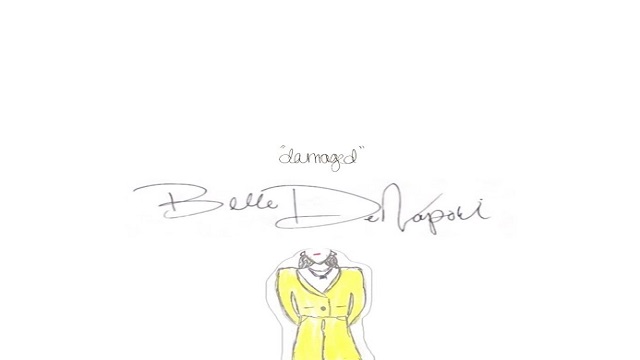 "damaged"
Belle DeNapoli